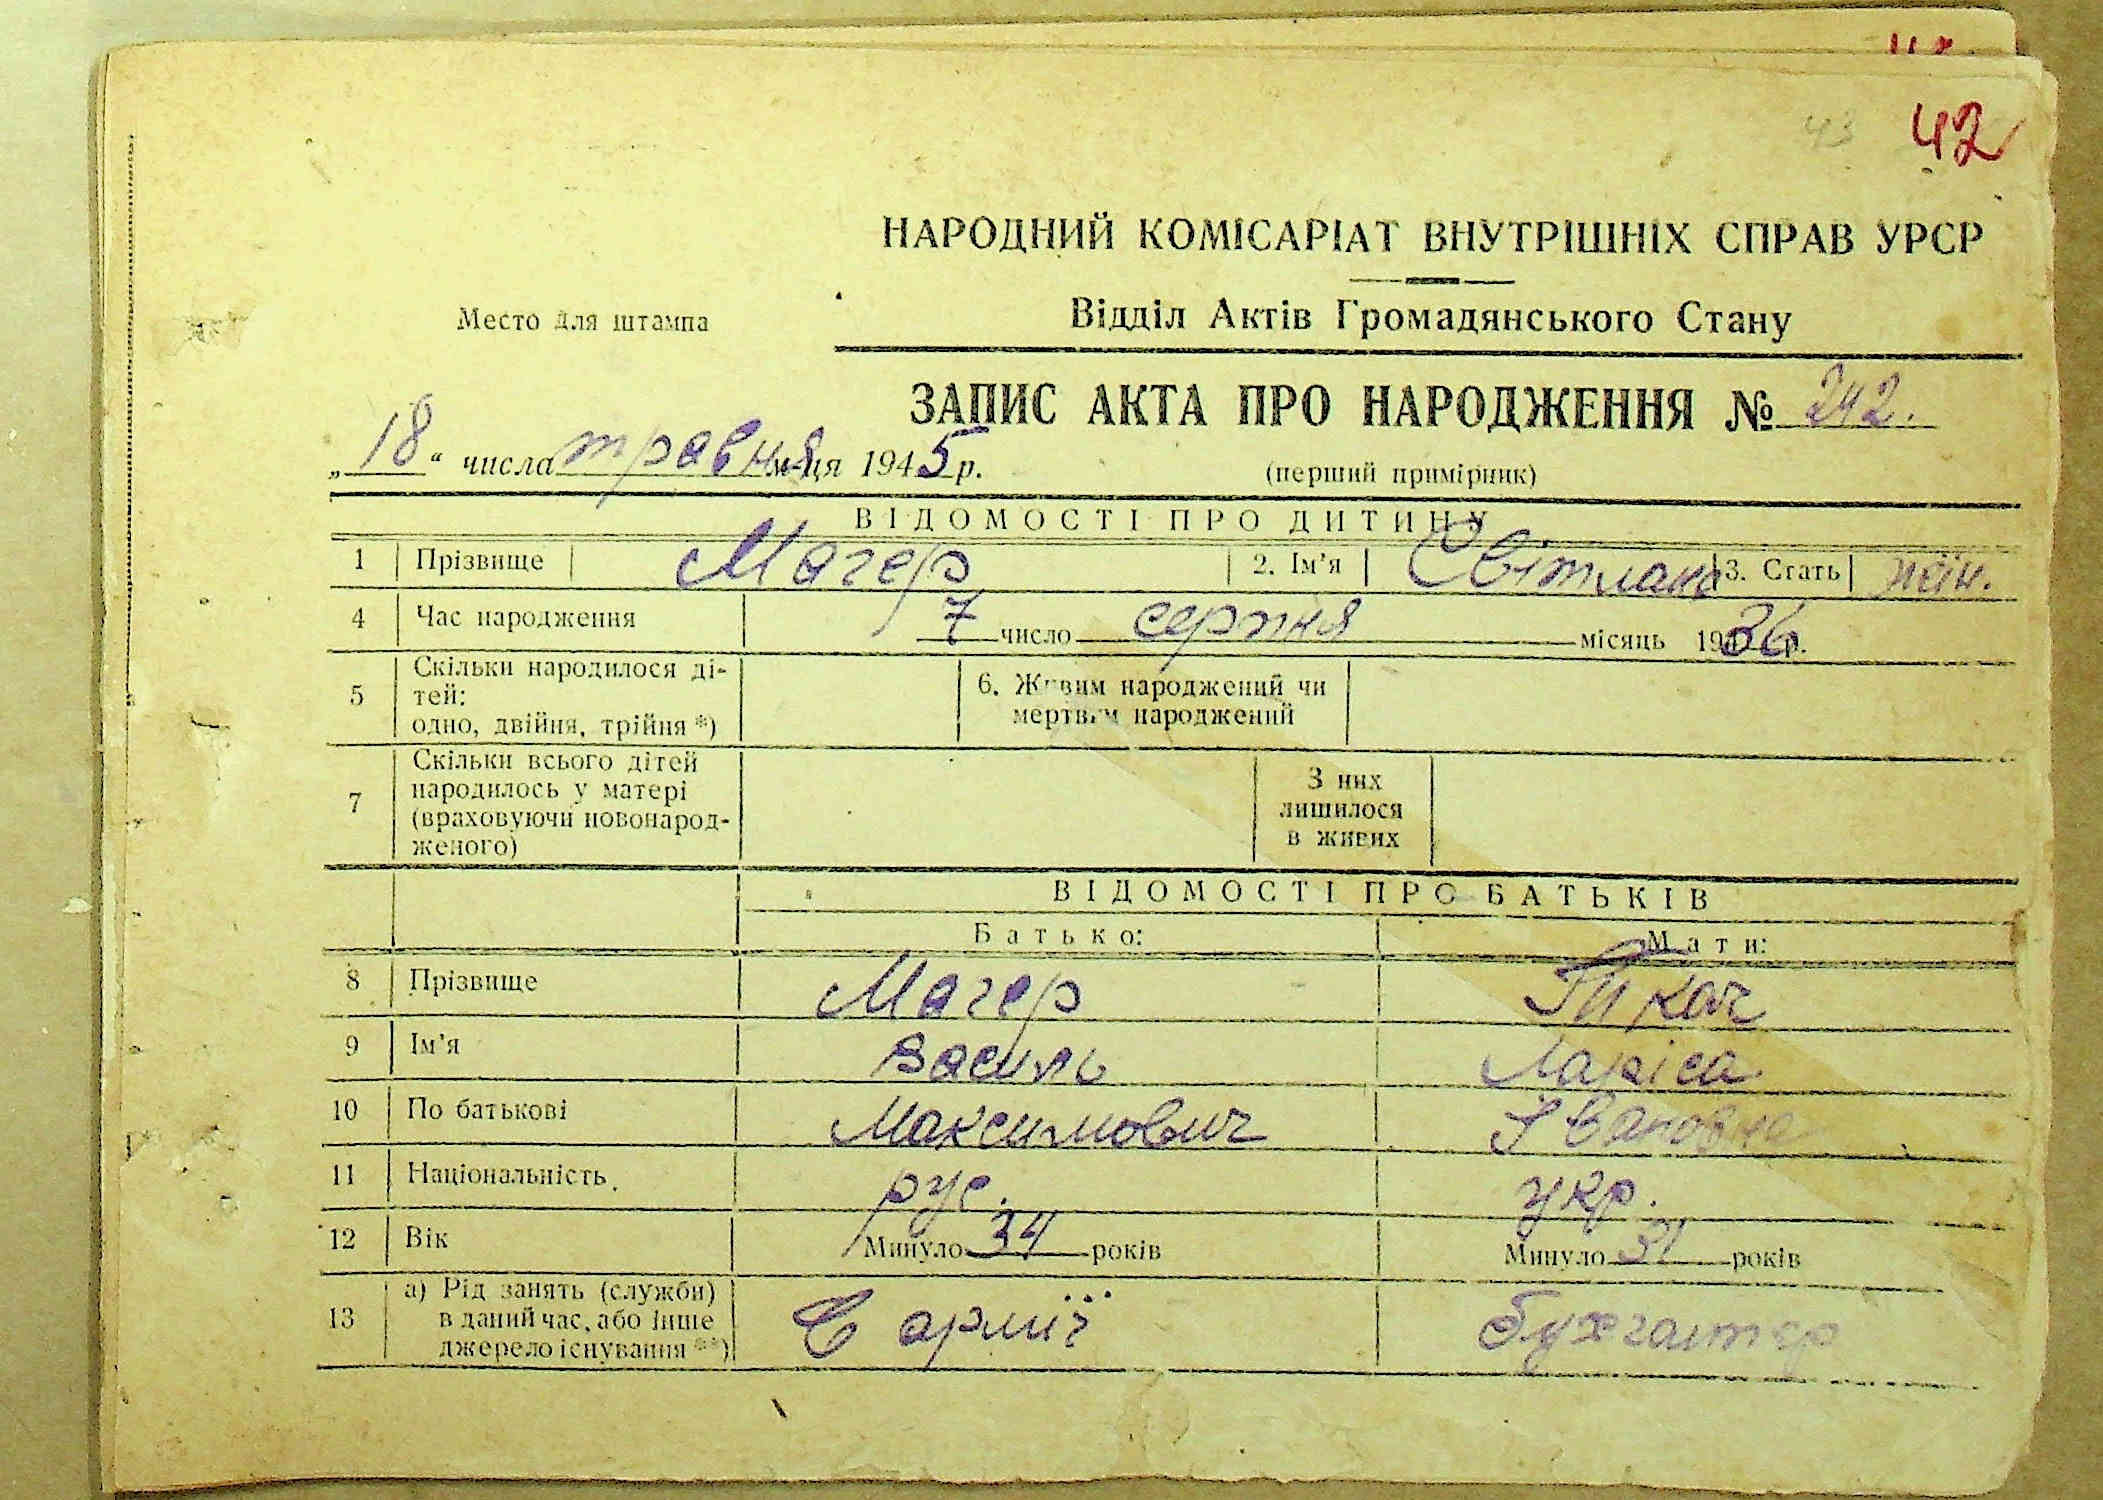 43 42
НАРОДНИЙ КОМІСАРІАТ ВНУТРІШНІХ СПРАВ УРСР
Место для штампа
Відділ Актів Громадянського Стану
ЗАПИС АКТА ПРО НАРОДЖЕННЯ № 242.
„18“ числа травня м-ця 1945 р.
(перший примірник)
ВІДОМОСТІ ПРО ДИТИНУ
1 Прізвище Магер 2. Ім'я Світлана 3. Стать жін.
4 Час народження 7 число серпня місяць 1936 р.
5 Скільки народилося ді-
тей:
одно, двійня, трійня *)
6. Живим народжений чи
мертвим народжений
7 Скільки всього дітей
народилось у матері
(враховуючи новонарод-
женого)
З них
лишилося
в живих
ВІДОМОСТІ ПРО БАТЬКІВ
Батько: Мати:
8 Прізвище Магер
9 Ім'я Василь Лариса
10 По батькові Максимович Івановна
11 Національність рус. укр.
12 Вік Минуло 34 років Минуло 31 років
13 а) Рід занять (служби)
в даний час, або інше
джерело існування **)
В армії бухгалтер